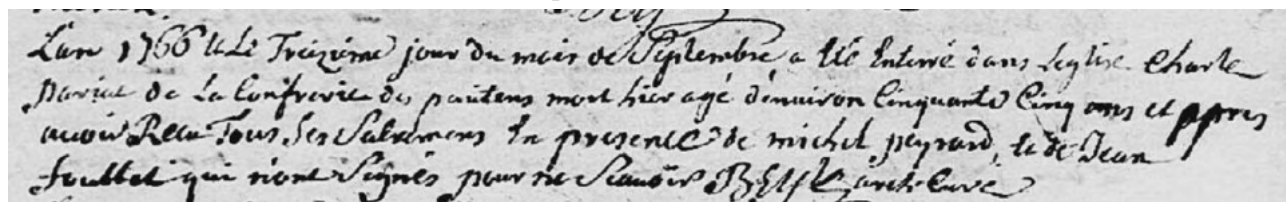 L'an 1766 & Le Treizieme jour du mois de Septembre a Eté Enterré dans Leglise Charle
pariat de La Confrerie des penitens mort hier agé d'environ Cinquante Cinq ans et appres
avoir Receu Tous Ses Sacremens En presence de michel peyrard, & de Jean
qui n'ont Signés pour ne Scauoir Curé